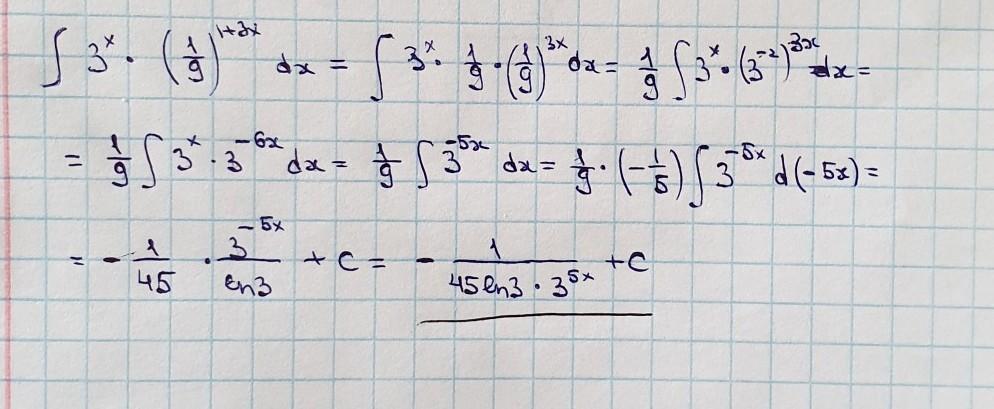 ∫ 3^x · (1/9)^(1+3x) dx = ∫ 3^x · 1/9 · (1/9)^(3x) dx = 1/9 ∫ 3^x · (3^(-2))^(3x) dx =
= 1/9 ∫ 3^x · 3^(-6x) dx = 1/9 ∫ 3^(-5x) dx = 1/9 · (-1/5) ∫ 3^(-5x) d(-5x) =
= - 1/45 · 3^(-5x)/ln3 + C = - 1/(45 ln3 · 3^(5x)) + C